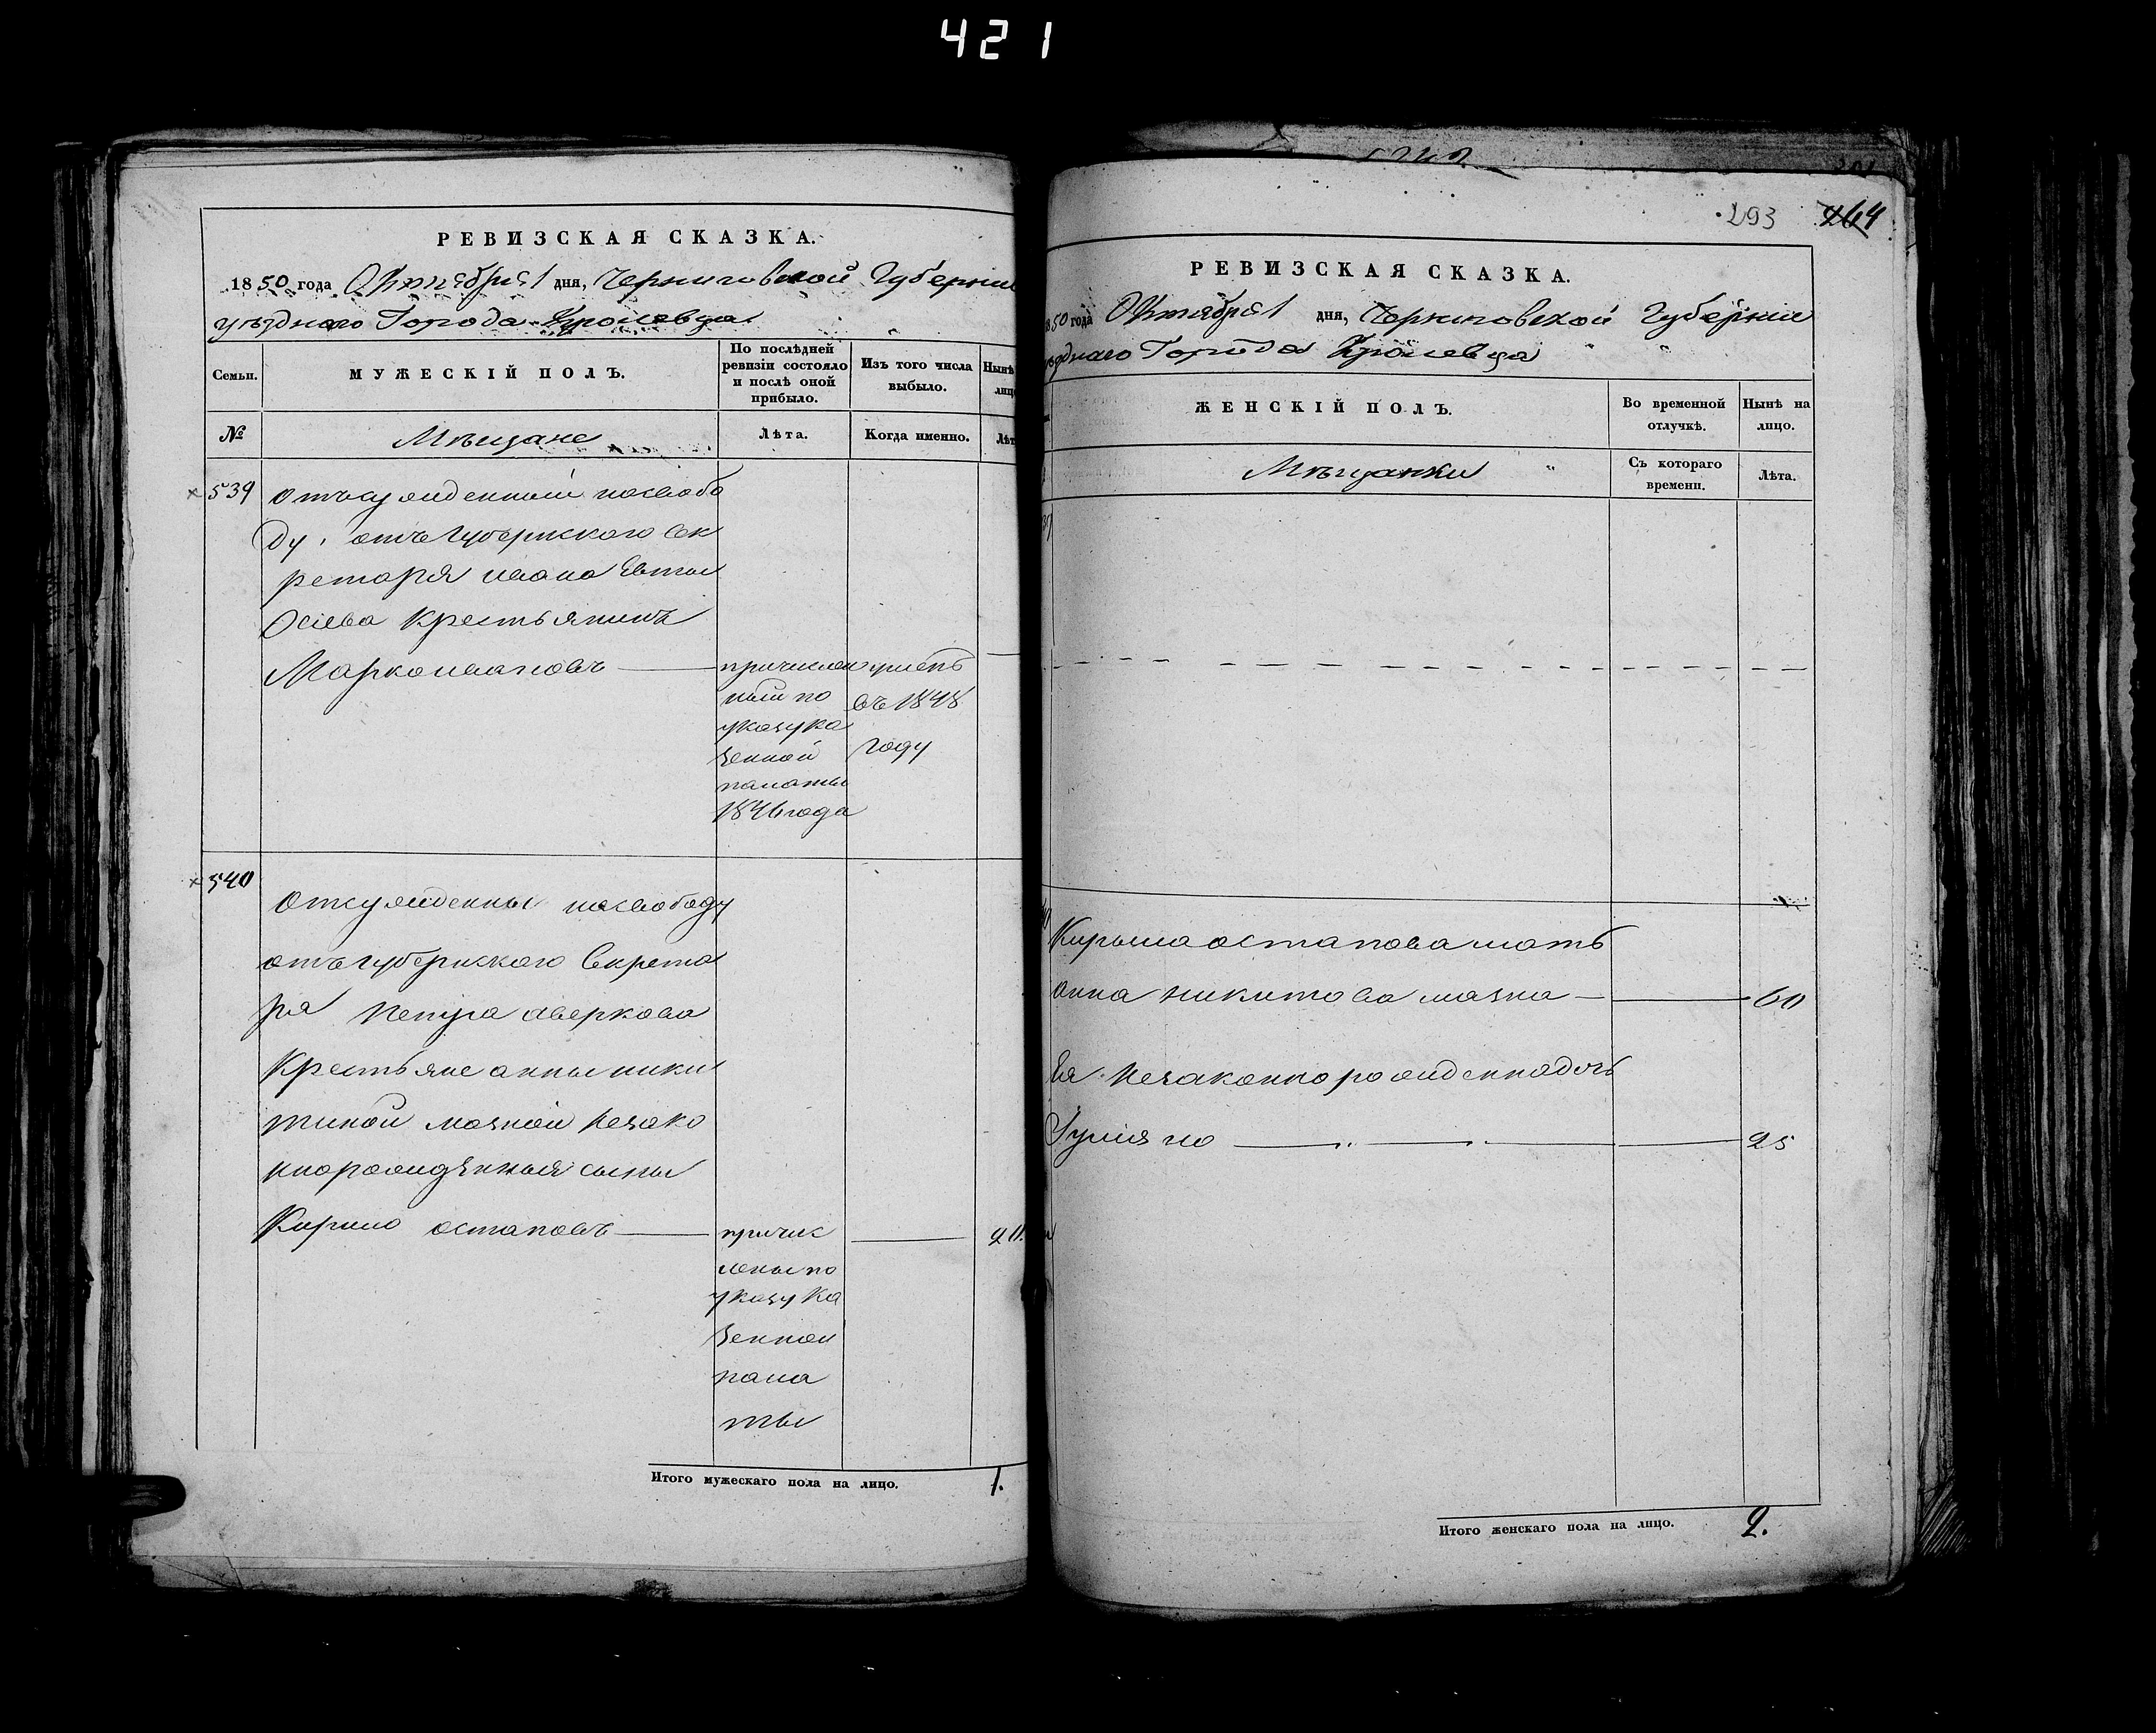 421
РЕВИЗСКАЯ СКАЗКА.
1850 года Октября 1 дня, Черниговской Губерніи
уѣзднаго Города Кролевца
Семьи.
МУЖЕСКІЙ ПОЛЪ.
По послѣдней ревизіи состояло и послѣ оной прибыло.
Изъ того числа выбыло.
Нынѣ
лиц
№
Мѣщане
Лѣта.
Когда именно.
Лѣт
539
отъсужденный насвобо
ду, отъ Губернского Сек
ретаря ивана Евты
Осіева Крестьянинъ
Марко ивановъ
причислен
ный по
указу ка
зенной
палаты
1846 года
умеръ
въ 1848
году
540
Отсужденные насвободу
отъ губернского Секрета
ря Петра аверкова
Крестьяне анны ники
тиной мазной незако
норожденныя сыны
Кирило остаповъ
причис
лены по
указу ка
зенной
пала
ты
Итого мужескаго пола на лицо.
1.
293
264
РЕВИЗСКАЯ СКАЗКА.
1850 года Октября 1 дня, Черниговской Губерніи
уѣзднаго Города Кролевца
ЖЕНСКІЙ ПОЛЪ.
Во временной отлучкѣ.
Нынѣ на лицо.
Мѣщанки
Съ котораго времени.
Лѣта.
Кирыла остапова мать
анна никитова мазна
60
Ея незаконнорожденна дочь
25
Итого женскаго пола на лицо.
2.